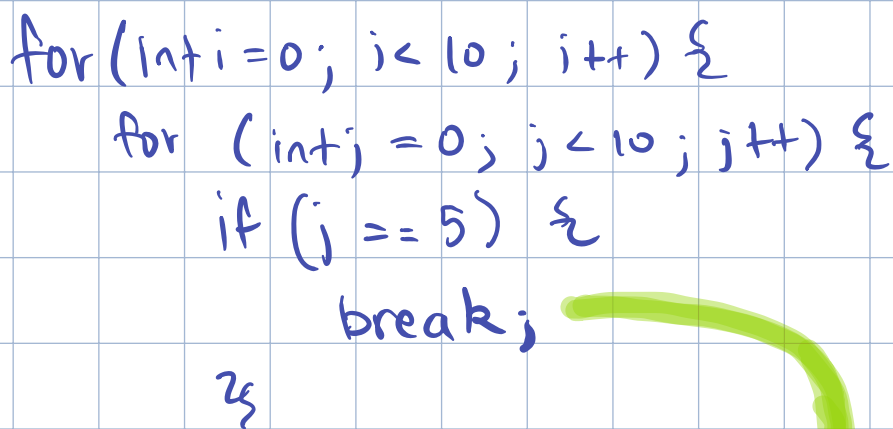 for (int i = 0; i < 10; i++) {
for (int j = 0; j < 10; j++) {
if (j == 5) {
break;
}